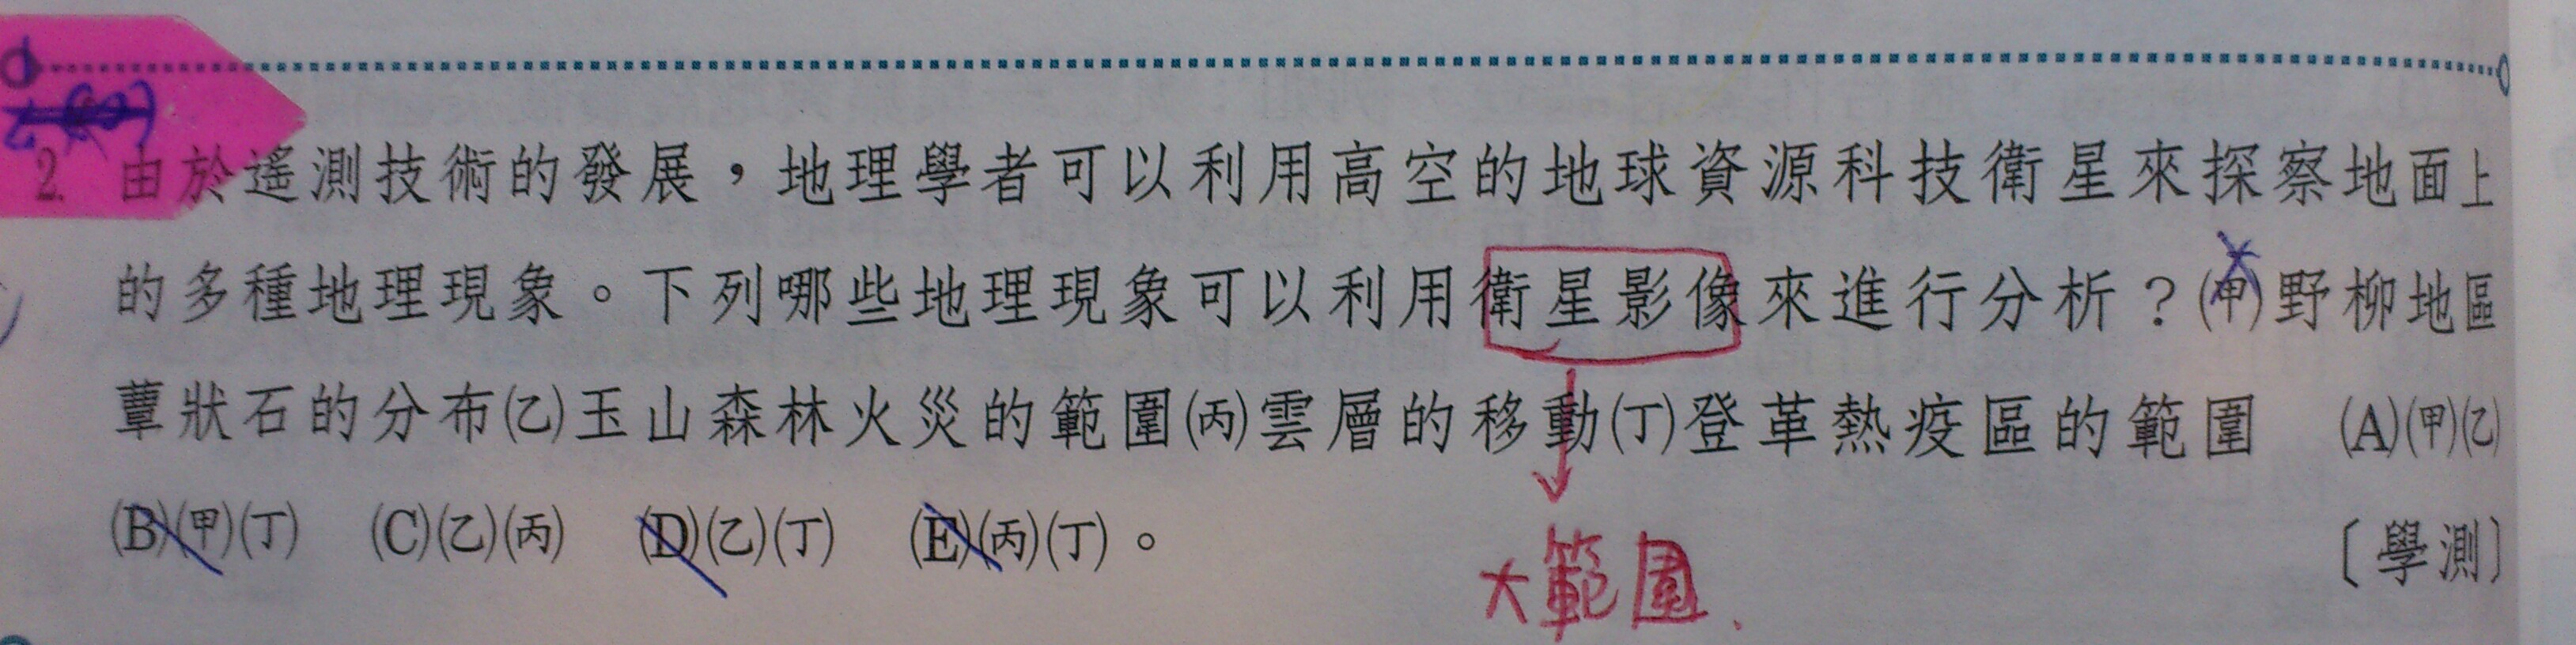 2. 由於遙測技術的發展，地理學者可以利用高空的地球資源科技衛星來探察地面上
的多種地理現象。下列哪些地理現象可以利用衛星影像來進行分析？(甲)野柳地區
蕈狀石的分布(乙)玉山森林火災的範圍(丙)雲層的移動(丁)登革熱疫區的範圍 (A)(甲)(乙)
(B)(甲)(丁) (C)(乙)(丙) (D)(乙)(丁) (E)(丙)(丁)。 〔學測〕
大範圍